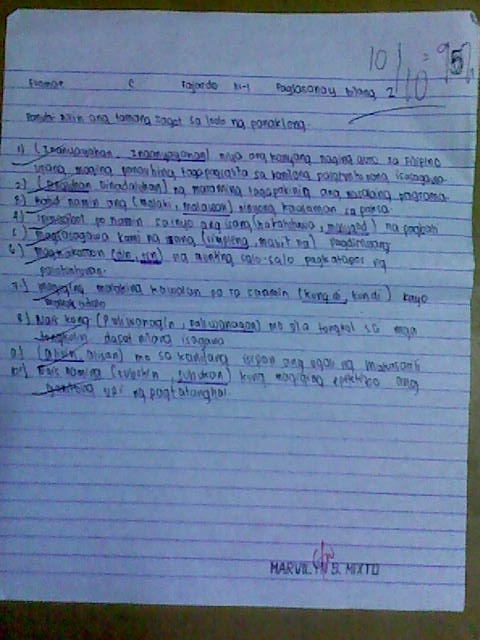 10/10 = 95%
C Fajardo III-1 Pagsasanay bilang 2
Panuto: Piliin ang tamang sagot sa loob ng panaklong.
1) (Inanyayahan, Inaanyayahan) niya ang kanyang naging guro sa Filipino
upang maging panauhing tagapagsalita sa kanilang palatuntunang isasagawa.
2) (Dinaluhan) ng maraming tagapakinig ang nasabing programa.
3) Batid namin ang (malaki, malawak) ninyong kaalaman sa paksa.
4) po namin sa inyo ang isang na pagbati
5) Magsasagawa kami ng isang (simpleng, mabit na) pagdiriwang
6) Magkakaroon (din, rin) ng munting salo-salo pagkatapos ng
palatuntunan.
7) Magiging malaking kawalan po sa saamin (kung di, kundi) kayo
8) Nais kong (Paliwanagin, paliwanagan) mo sila tungkol sa mga
tungkulin dapat nilang isagawa
9) (Alisin, Alisan) mo sa kanilang isipan ang ugali ng
10) Nais naming (subukin, subukan) kung magiging epektibo ang
ganitong uri ng pagtatanghal.
MARVILYN B. MIXTO